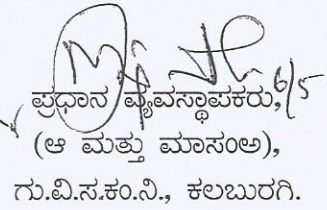 6/5
ಪ್ರಧಾನ ವ್ಯವಸ್ಥಾಪಕರು,
(ಆ ಮತ್ತು ಮಾಸಂಅ),
ಗು.ವಿ.ಸ.ಕಂ.ನಿ., ಕಲಬುರಗಿ.